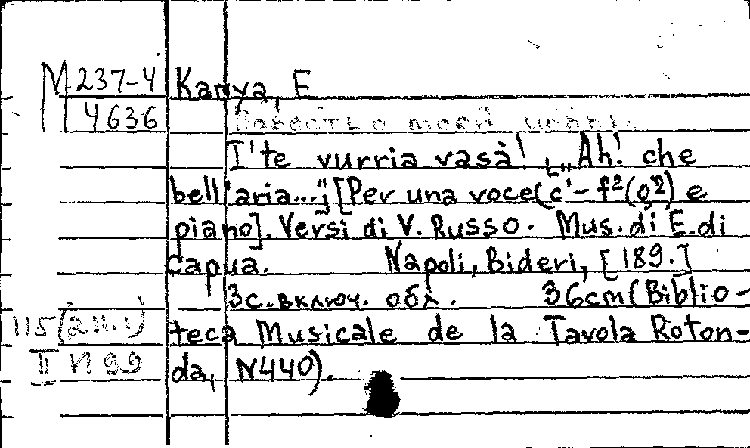 М 237-4
4636
Капуа, Е
I'te vurria vasà! „Ah! che
bell'aria..."; [Per una voce (c¹-f²(g²) e
piano]. Versi di V. Russo. Mus. di E. di
Capua. Napoli, Bideri, [189.]
3с. включ. обл. 36cm (Biblio-
teca Musicale de la Tavola Roton-
da, N440).
115
II N 99